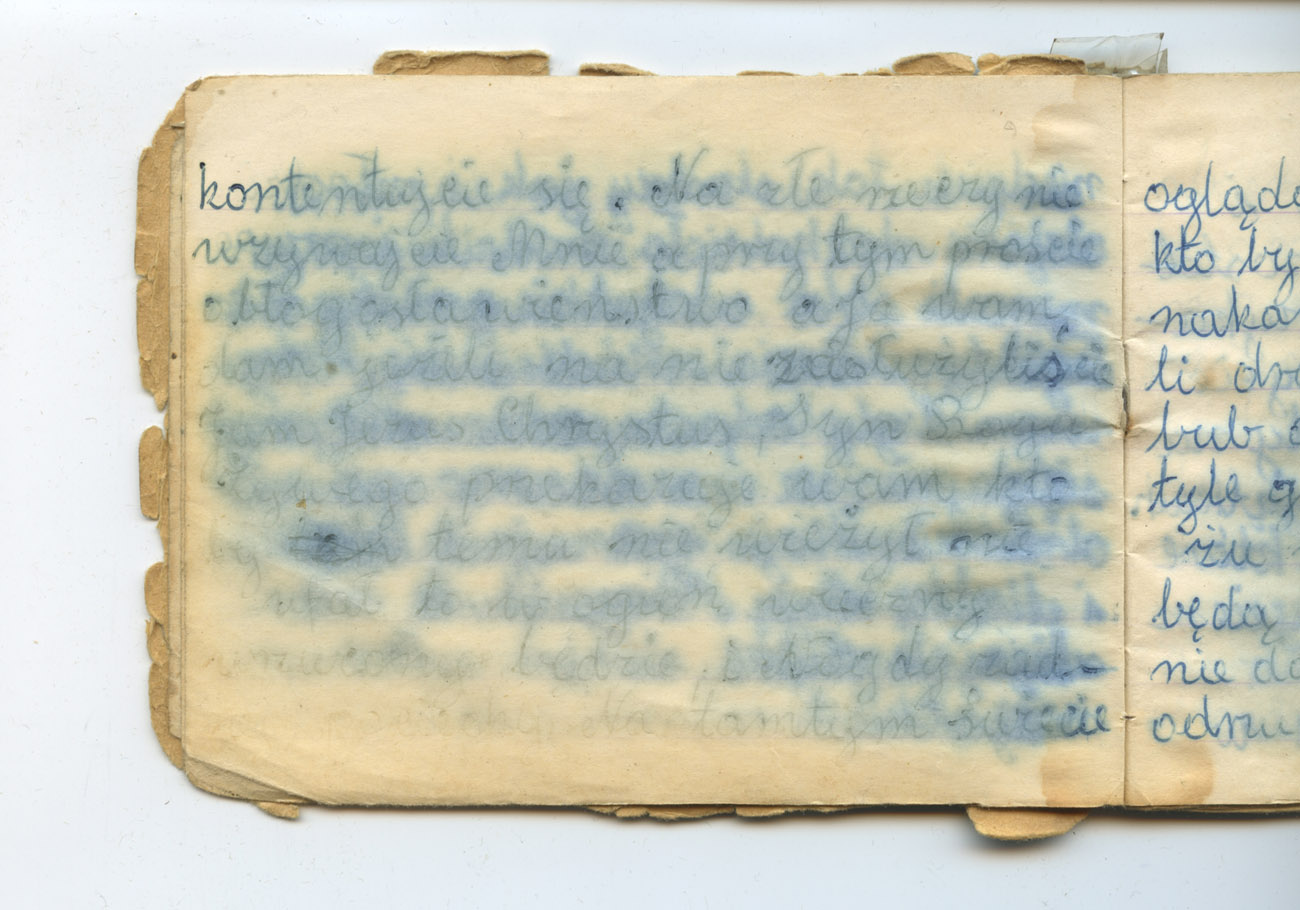 kontentujcie się. Na złe rzeczy nie
wzywajcie Mnie a przy tym proście
o błogosławieństwo a Ja wam
dam jeżili na nie zasłużyliście
Jam Jezus Chrystus, Syn Boga
Żywego przekazuje wam kto
by temu nie wieżył nie
to w ogień wieczny
wrzucony będzie, i nigdy
Na tamtym świecie
ogląda
kto by
naka
li
bub
tyle
żu
będą
nie do
odrzu